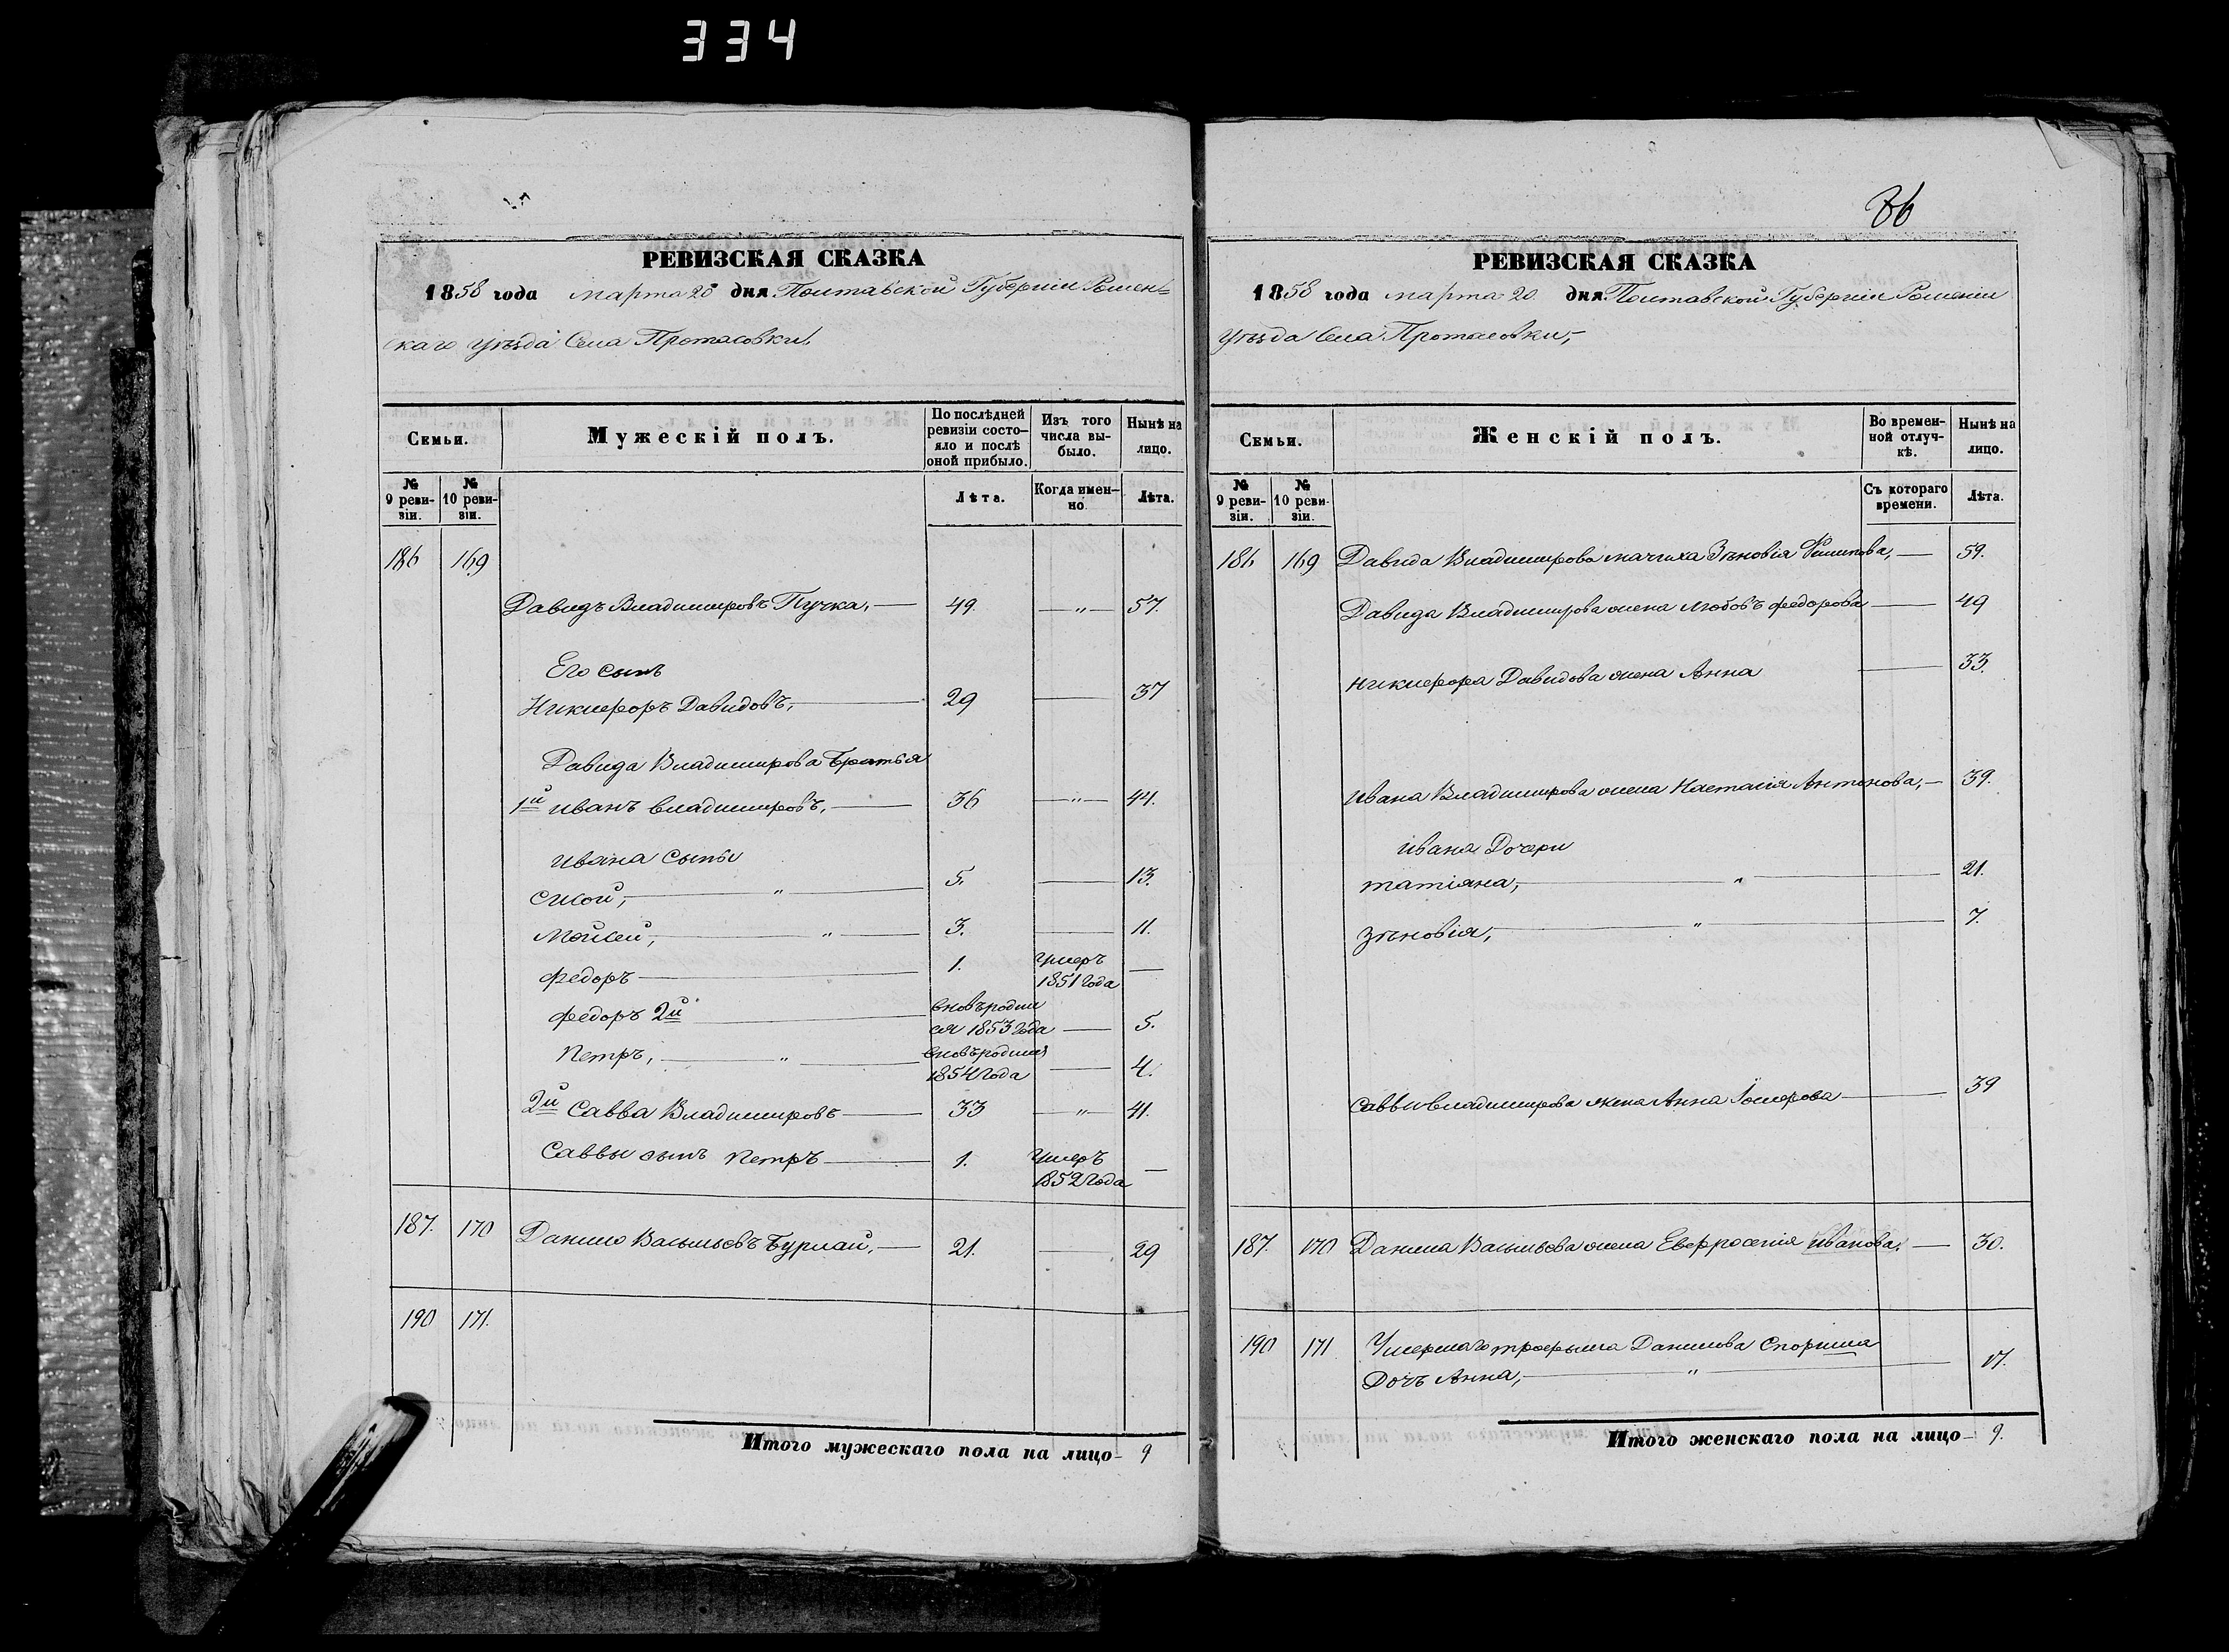 334
РЕВИЗСКАЯ СКАЗКА
1858 года марта 20 дня Полтавской Губерніи Ромен-
скаго уѣзда Села Протасовки,
Семьи.
Мужескій полъ.
По послѣдней ревизіи состо-яло и послѣ оной прибыло.
Изъ того числа вы-было.
Нынѣ на лицо.
№ 9 реви-зіи.
№ 10 реви-зіи.
Лѣта.
Когда имен-но.
Лѣта.
186 169
Давидъ Владимировъ Пучка, 49. 57.
Его сынъ
Никифоръ Давидовъ, 29 37
Давида Владимирова Братья
1й иванъ владимировъ, 36 44.
ивана сыны
сисой, 5. 13.
Мойсей, 3. 11.
федоръ 1. умеръ 1851 года
федоръ 2й вновьродил ся 1853 года 5.
Петръ, вновьродился 1854 года 4.
2й Савва Владимировъ 33 41.
Саввы сынъ Петръ 1. умеръ 1852 года
187. 170 Данило Васильевъ Бурлай, 21. 29
190 171.
Итого мужескаго пола на лицо 9
86
РЕВИЗСКАЯ СКАЗКА
1858 года марта 20 дня Полтавской Губерніи
уѣзда Села Протасовки,
Семьи.
Женскій полъ.
Во времен-ной отлуч-кѣ.
Нынѣ на лицо.
№ 9 реви-зіи.
№ 10 реви-зіи.
Съ котораго времени.
Лѣта.
186 169 Давида Владимирова мачиха Зѣновія 59.
Давида Владимирова жена любовъ федорова 49
Никифора Давидова жена Анна 33.
ивана Владимирова жена Настасія Антонова, 39.
ивана Дочери
татіяна, 21.
зѣновія, 7.
Саввы владимирова жена Анна 39
187. 170 Данила Васильева жена Евфросенія иванова. 30.
190 171 Умершаго трофыма Данилова Спориша
Дочь Анна, 17.
Итого женскаго пола на лицо 9.